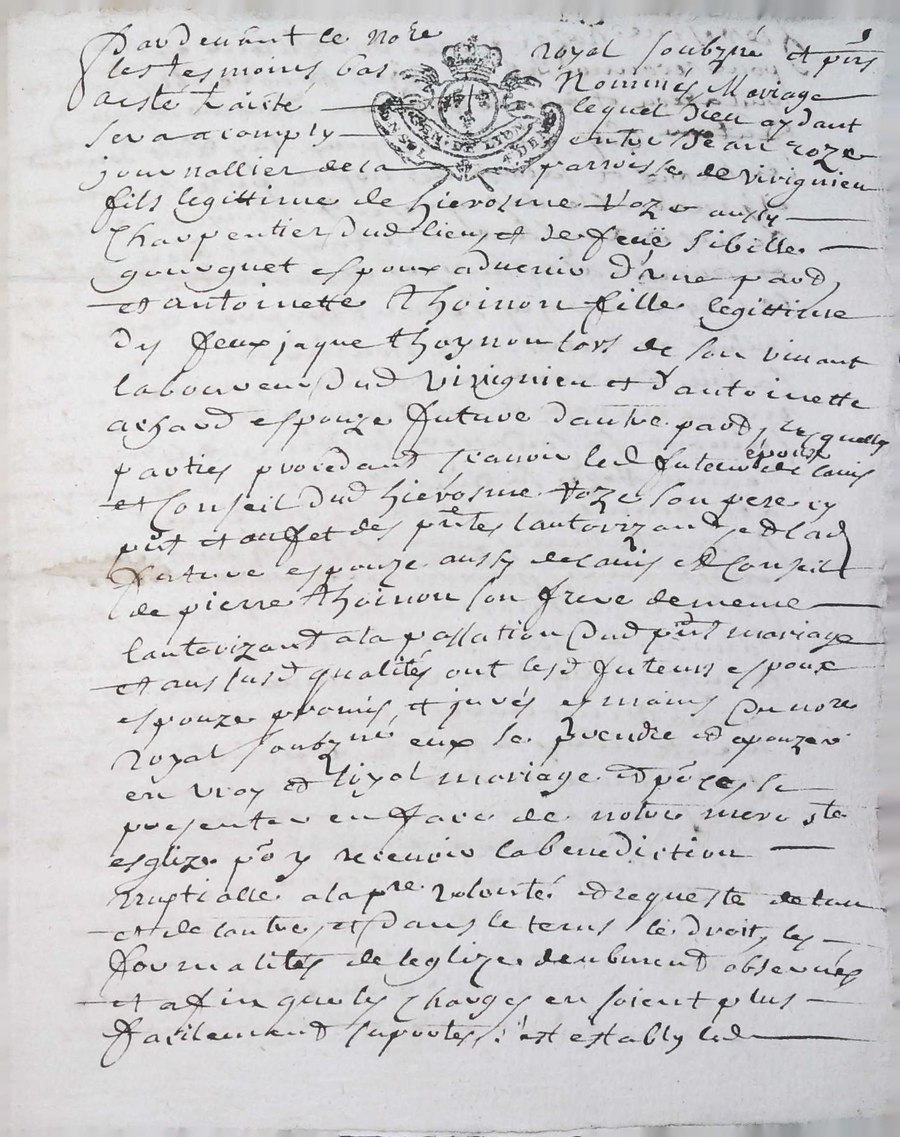 Pardevant le no.re royal soubzné et pnts
les tesmoins bas Nommés Mariage
a esté traicté lequel Dieu aydant
sera acomply entre Jean Roze
journallier de la parroisse de virignieu
fils legittime de hierosme Roze aussy
Charpentier dud lieu et de feuë Sibille
gouguet espoux advenir d'une pard,
et antoinette thoinon fille legittime
des feux jaque thoynon lors de son vivant
laboureur dud virignieu et d'antoinette
espouze future d'autre pard, lesquelles
parties procedant scavoir led futeur époux de l'avis
et Conseil dud hiérosme Roze son pere cy
pnt et au fet des pntes l'autorizand, et lad
future espouze aussy de l'avis et Conseil
de pierre thoinon son frere de meme
l'autorizand a la passation dud pnt mariage
et aus susd qualités ont lesd futeurs espoux
espouze promis et jurés es mains du no.re
royal soubzné eux se prendre et epouzer
en vray et loyal mariage et po ce, se
presenter en face de notre mere s.te
esglize po y recevoir la benediction
nuptialle a la p.re volonté et requeste de l'un
et de l'autre, et dans le tems de droit, les
formalités de l'eglize deubment observées
et afin que les charges en soient plus
facilemand suportes, s'est estably led